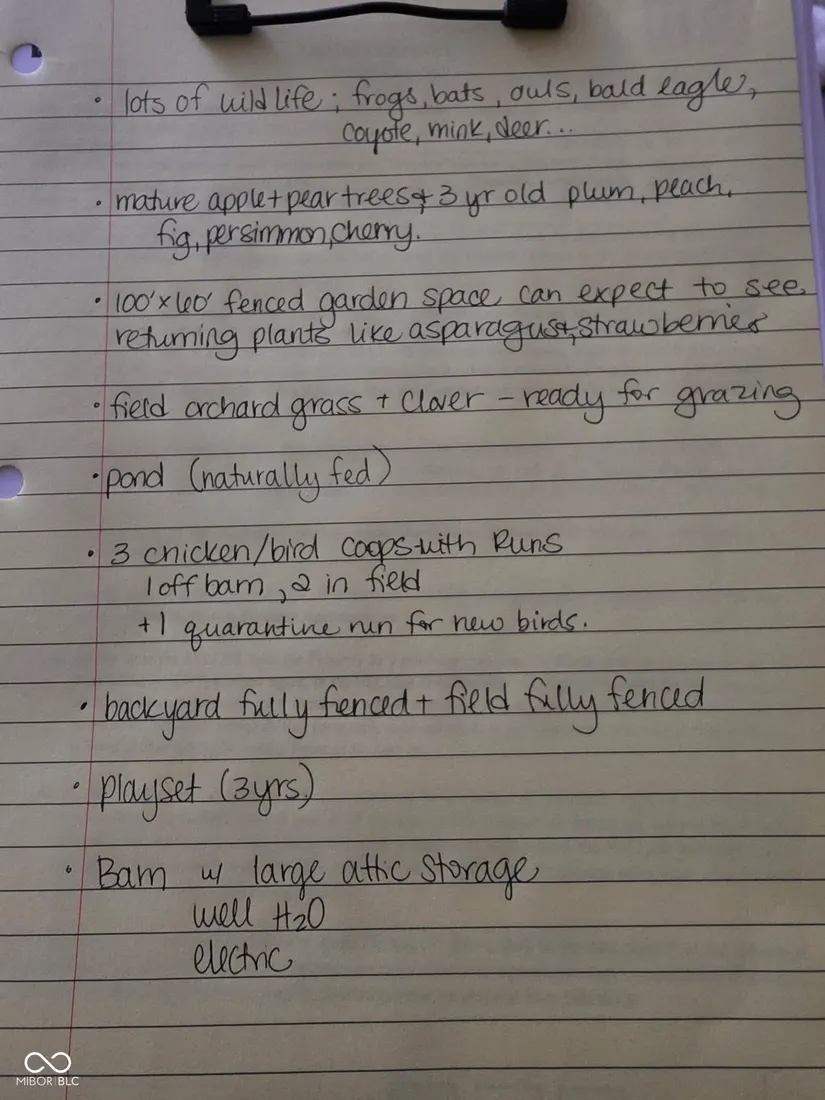 • lots of wildlife; frogs, bats, owls, bald eagle,
coyote, mink, deer...
• mature apple + pear trees & 3 yr old plum, peach,
fig, persimmon, cherry.
• 100' x 60' fenced garden space can expect to see
returning plants like asparagus & strawberries
• field orchard grass + clover - ready for grazing
• pond (naturally fed)
• 3 chicken/bird coops with Runs
1 off barn, 2 in field
+1 quarantine run for new birds.
• backyard fully fenced + field fully fenced
• playset (3yrs)
• Barn w/ large attic storage
well H2O
electric
MIBOR BLC